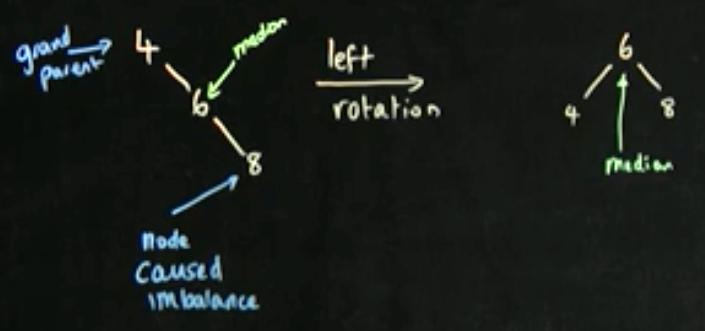 grand
parent
4
medon
6
8
node
caused
imbalance
left
rotation
6
4
8
median